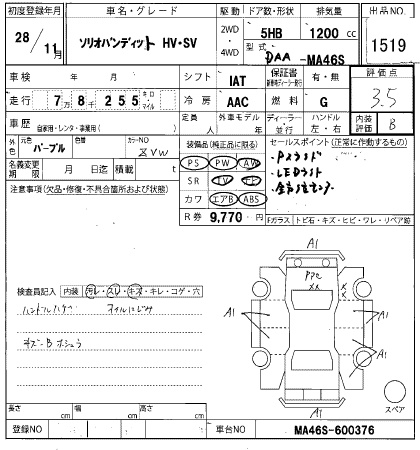 初度登録年月 車名・グレード 駆動 ドア数・形状 排気量 出品NO.
28/11月 ソリオバンディット HV・SV 2WD・4WD 5HB 1200 cc 1519
型式 DAA-MA46S
車検 年 月 シフト IAT 保証書 有・無 評価点
走行 7万8千255 キロ マイル 冷房 AAC 燃料 G 3.5
車歴 自家用・レンタ・事業用( ) 定員 人 外車モデル 年 ディーラー・並行 ハンドル 左・右 内装評価 B
外色 元色 パープル 色替 カラーNO ZVW 装備品(純正品に限る) セールスポイント(正常に作動するもの)
名義変更期限 月 日迄 積載 t PS PW AW
注意事項(欠品・修復・不具合箇所および状態) SR TV ナビ LEDライト
カワ エアB ABS
R券 9,770円 Fガラス トビ石・キズ・ヒビ・ワレ・リペア跡
A1
検査員記入 内装 汚レ・スレ・キズ・キレ・コゲ・穴
ハンドルハゲ
A1 A1
A1
長さ cm 幅 cm 高さ cm A1 スペア
登録NO 車台NO MA46S-600376